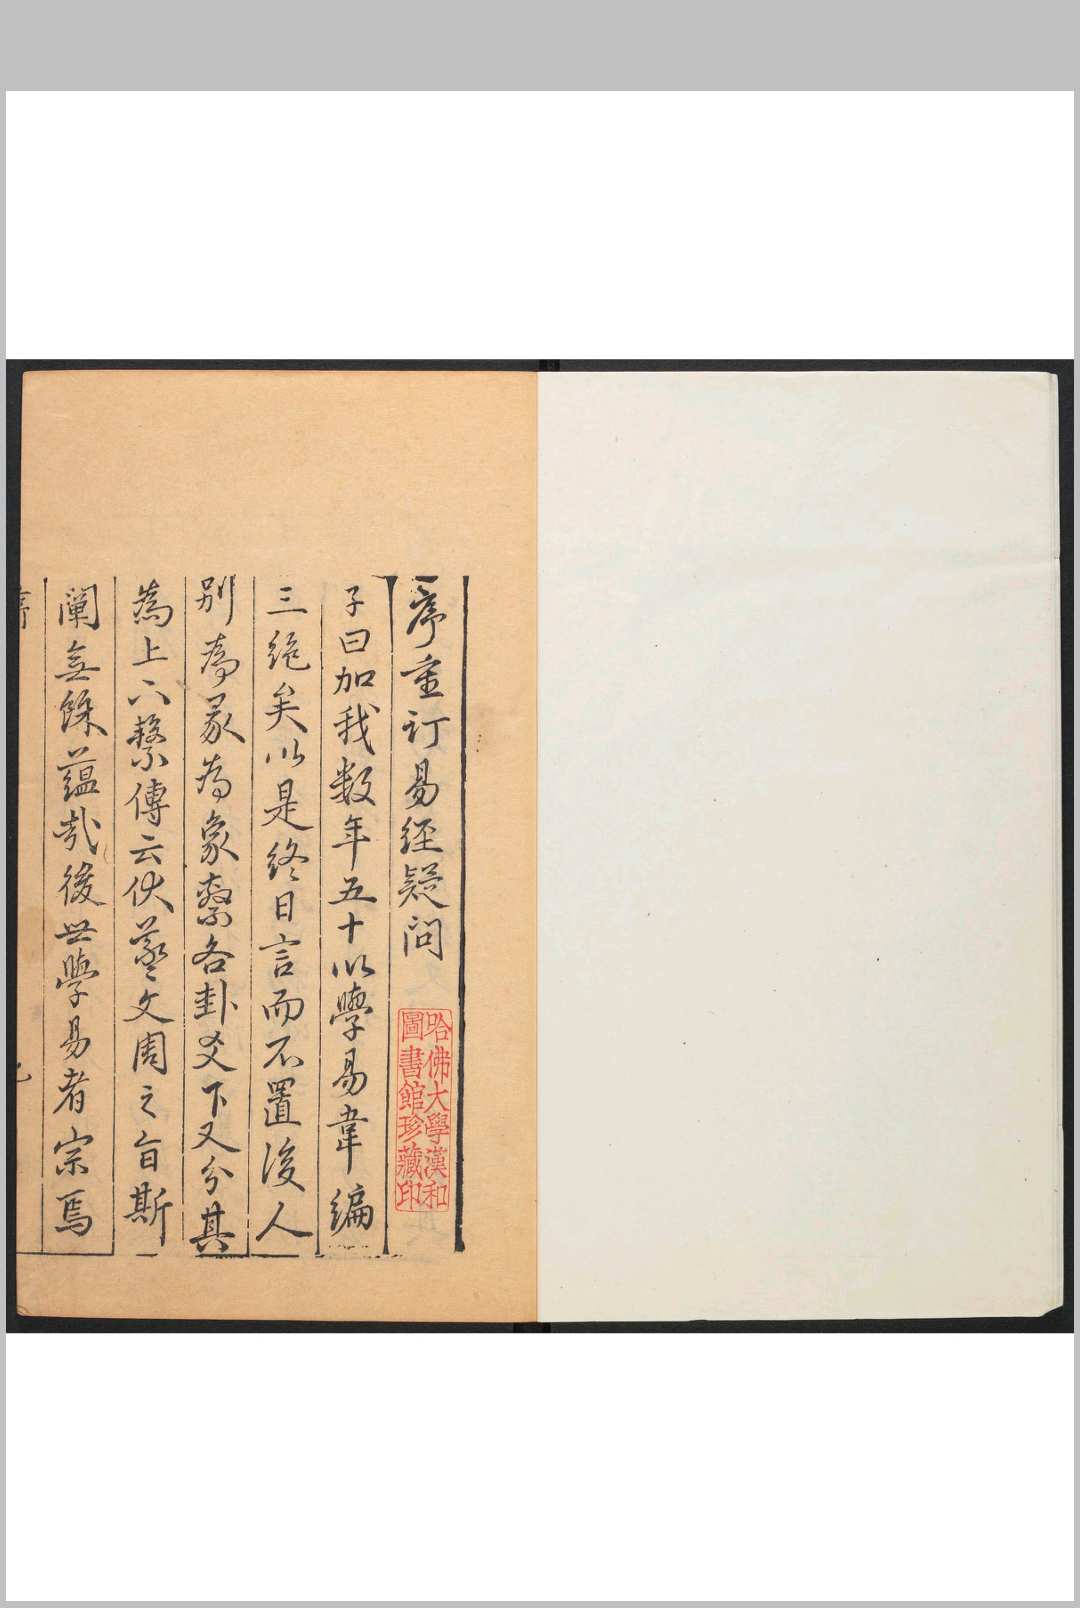 序重订易經疑問
哈佛大學漢和
圖書館珍藏印
子曰加我数年五十以學易韋編
三絶矣以是終日言而不置後人
别為彖為象繫各卦爻下又分其
為上下繫傳云伏羲文周之旨斯
闡無餘蘊哉後世學易者宗焉